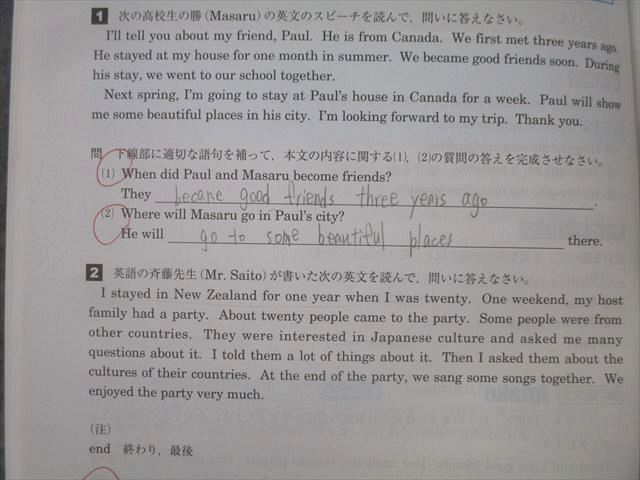 1 次の高校生の勝(Masaru)の英文のスピーチを読んで，問いに答えなさい。
I'll tell you about my friend, Paul. He is from Canada. We first met three years ago.
He stayed at my house for one month in summer. We became good friends soon. During
his stay, we went to our school together.
Next spring, I'm going to stay at Paul's house in Canada for a week. Paul will show
me some beautiful places in his city. I'm looking forward to my trip. Thank you.
問 下線部に適切な語句を補って，本文の内容に関する(1)，(2)の質問の答えを完成させなさい。
(1) When did Paul and Masaru become friends?
They became good friends three years ago.
(2) Where will Masaru go in Paul's city?
He will go to some beautiful places there.
2 英語の斉藤先生(Mr. Saito)が書いた次の英文を読んで，問いに答えなさい。
I stayed in New Zealand for one year when I was twenty. One weekend, my host
family had a party. About twenty people came to the party. Some people were from
other countries. They were interested in Japanese culture and asked me many
questions about it. I told them a lot of things about it. Then I asked them about the
cultures of their countries. At the end of the party, we sang some songs together. We
enjoyed the party very much.
(注)
end 終わり，最後